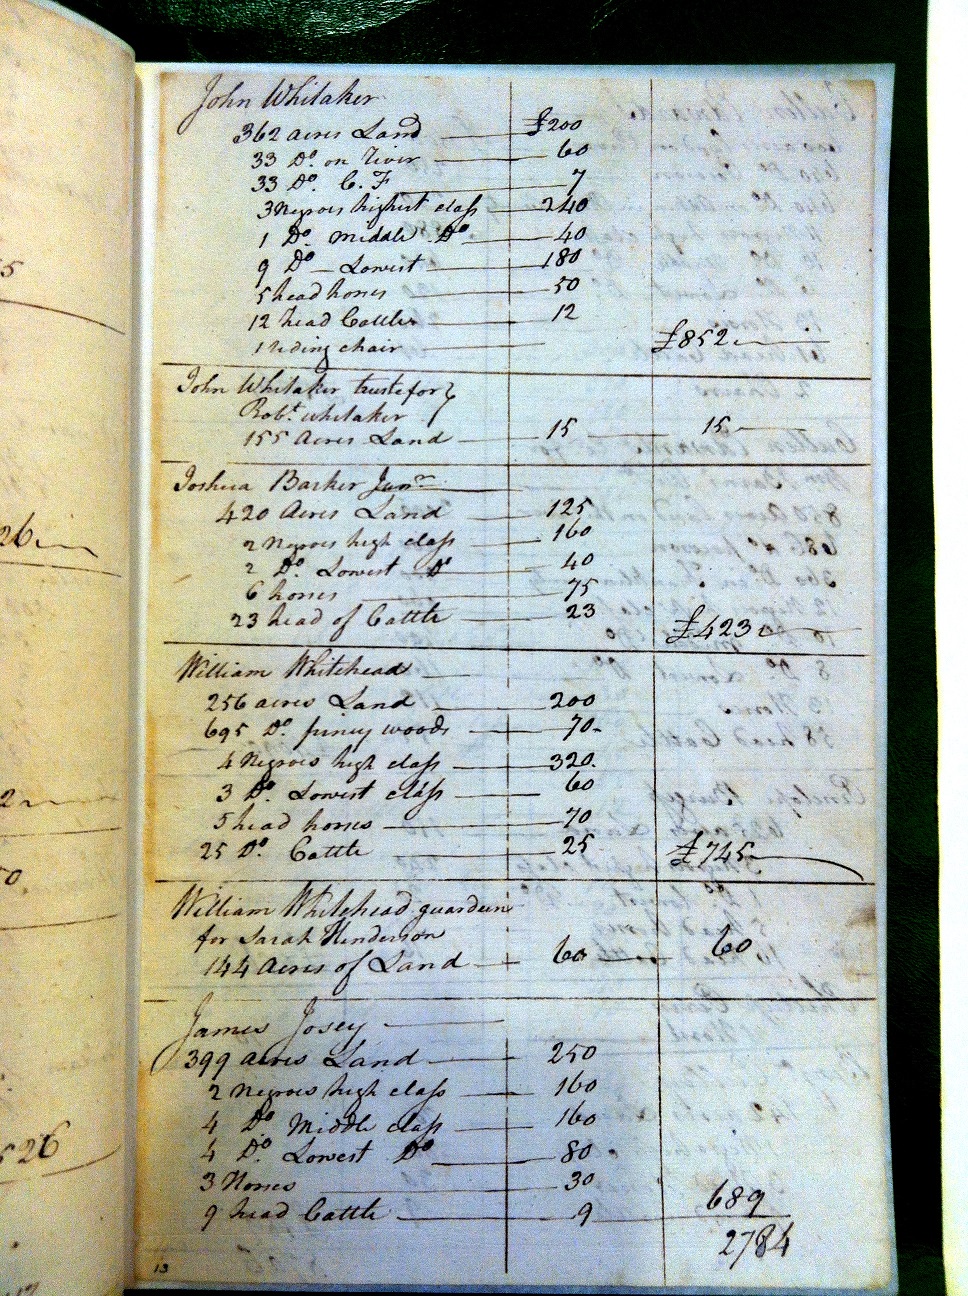 John Whitaker
362 acres Land £200
33 Do. on River 60
33 Do. C. F 7
3 Negroes highest class 240
1 Do. Middle Do 40
9 Do Lowest 180
5 head horses 50
12 head Cattle 12
1 riding chair £852
John Whitaker truste for
Robt. whitaker
155 Acres Land 15 15
Joshua Barker Junr
420 Acres Land 125
2 Negroes high class 160
2 Do. Lowest Do 40
6 horses 75
23 head of Cattle 23 £423
William Whitehead
256 acres Land 200
695 Do. piney woods 70
4 Negroes high class 320.
3 Do. Lowest class 60
5 head horses 70
25 Do. Cattle 25 £745
William Whitehead guardeen
for Sarah Henderson
144 Acres of Land 60 60
James Josey
399 acres Land 250
2 Negroes high class 160
4 Do Middle class 160
4 Do. Lowest Do 80
3 Horses 30
9 head Cattle 9 689
2784
13
26
526